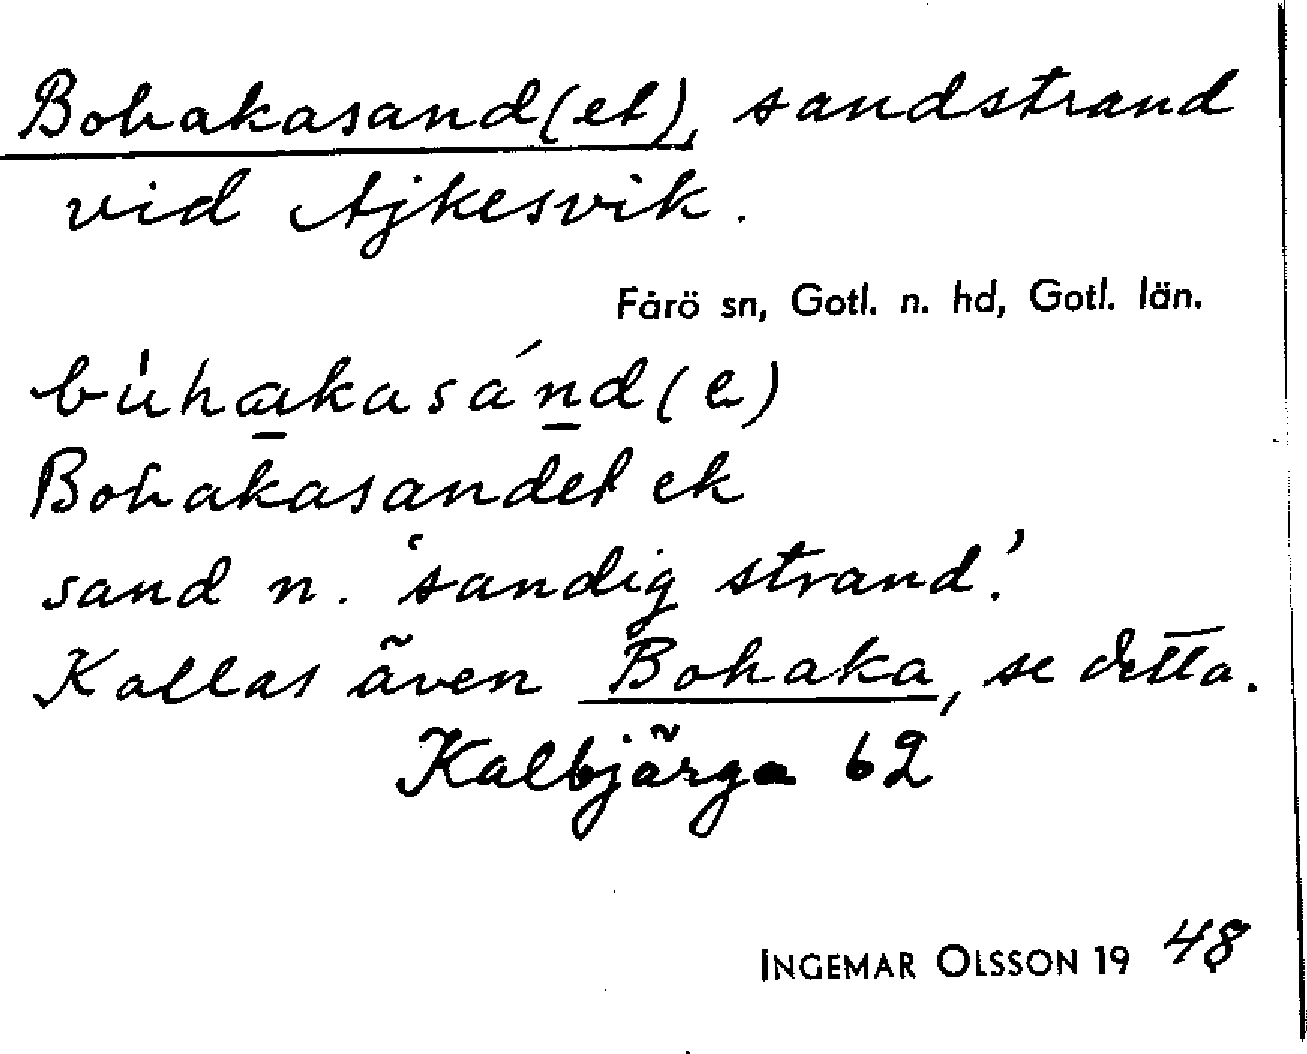 Bohakasand(et), sandstrand
vid Ajkesvik.
Fårö sn, Gotl. n. hd, Gotl. län.
bùhakasánd(e)
Bohakasandet ek
sand n. 'sandig strand'.
Kallas även Bohaka, se detta.
Kalbjärga 62
INGEMAR OLSSON 19 48